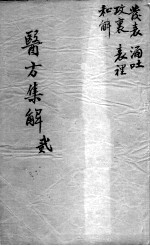 發表 涌吐
攻裏 表裡
和解
醫方集解 貳